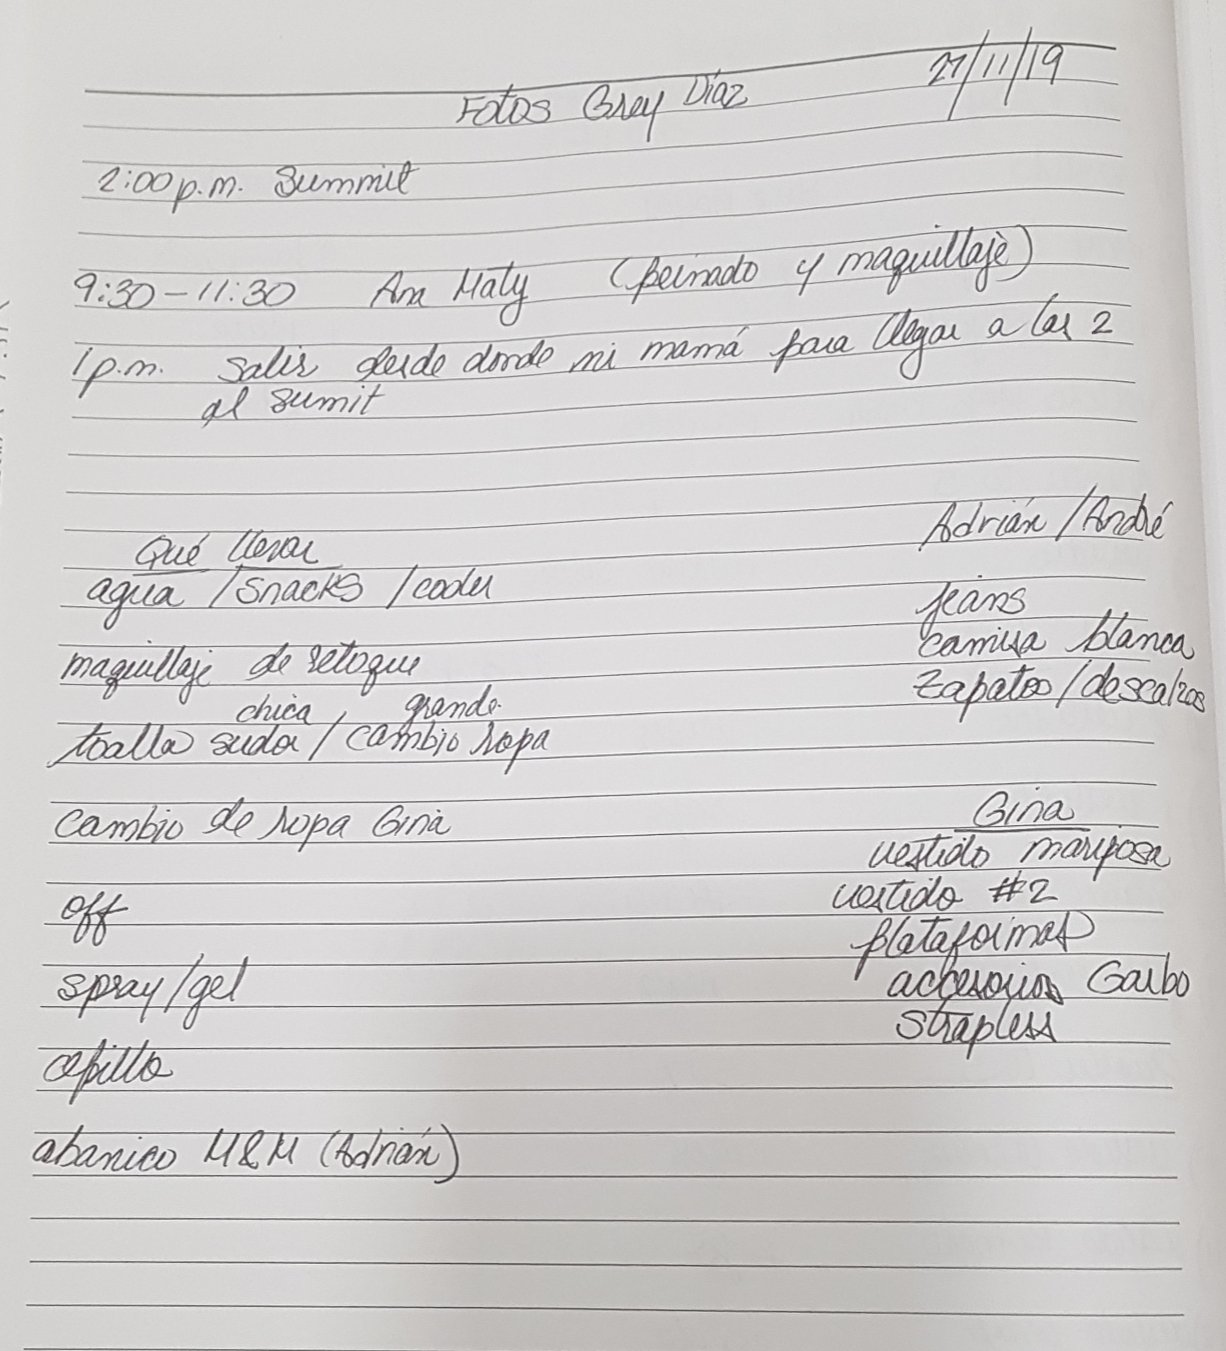 27/11/19
Fotos Grey Díaz
2:00 p.m. Summit
9:30 - 11:30 Ana Maty (peinado y maquillaje)
1 p.m. salir desde donde mi mamá para llegar a las 2
al sumit
Qué llevar
agua / snacks / cooler
maquillaje de retoque
chica, grande
toalla sudor / cambio ropa
cambio de ropa Gina
off
spray/gel
cepillo
abanico M&M (Adrián)
Adrián / André
jeans
camisa blanca
zapatos / descalzos
Gina
vestido mariposa
vestido #2
plataformas
accesorios Garbo
strapless